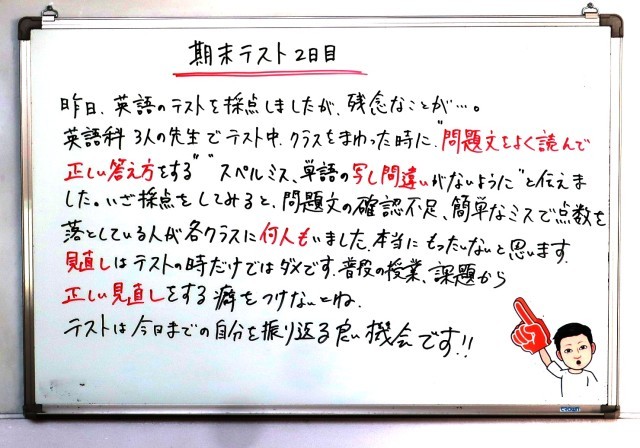 期末テスト2日目
昨日、英語のテストを採点しましたが、残念なことが…。
英語科3人の先生でテスト中、クラスをまわった時に、"問題文をよく読んで
正しい答え方をする" "スペルミス、単語の写し間違いがないように"と伝えま
した。いざ採点をしてみると、問題文の確認不足、簡単なミスで点数を
落としている人が各クラスに何人もいました。本当にもったいないと思います。
見直しはテストの時だけではダメです。普段の授業、課題から
正しい見直しをする癖をつけないとね。
テストは今日までの自分を振り返る良い機会です!!